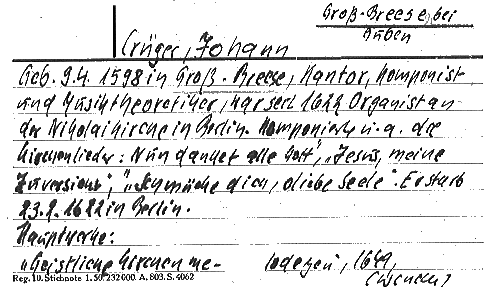 Groß-Breese, bei
Guben
Crüger, Johann
Geb. 9.4. 1598 in Groß-Breese, Kantor, Komponist
und Musiktheoretiker, war seit 1622 Organist an
der Nikolaikirche in Berlin. Komponierte u.a. die
Kirchenlieder: Nun danket alle Gott", "Jesus, meine
Zuversicht", "Schmücke dich, o liebe Seele". Er starb
23.2.1662 in Berlin.
Hauptwerke:
"Geistliche Kirchen me- lodeyen", 1649,
Reg. 10. Stichnote 1. 50. 232000. A. 803. S. 4062